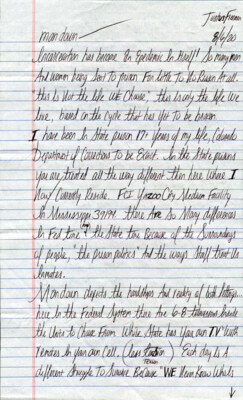 8/6/20
man down
Incarceration has become An Epidemic In Itself! So many men
And women being Sent to prison For Little To No Reason At all.
"this Is Not the life WE Choose", this is only the life We
live, based on the Cycle that has yet To be broken
I have been In State prison 17+ years of my life, Colorado
Department of Corrections To Be Exact. In the State prisons
you are treated all the way different than here Where I
Now Currently Reside. FCI Yazoo City Medium Facility
In Mississippi 39194. there Are So Many differences
In Fed time & the State time Because of the Surroundings
of people, "the prison politics" And the ways Staff treat Us
Inmates.
Man down depicts the hardships And reality of
here In the Federal System there Are 6-8 televisions Inside
the Units to Choose From While State has Your own TV With
Remotes In your own Cell. Each day Is A
different Struggle To Survive Because "WE Never Know What's